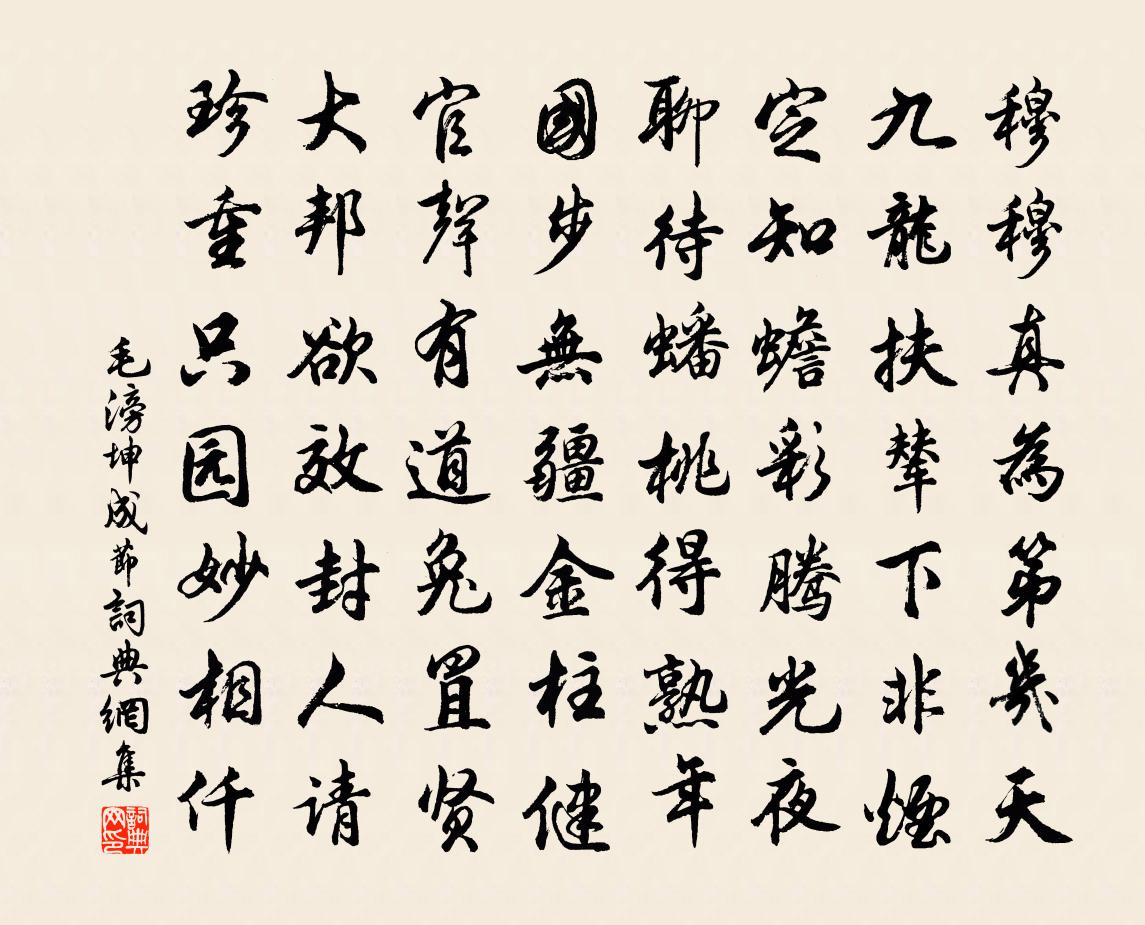 穆穆真為第幾天
九龍扶輦下非煙
定知蟾彩騰光夜
聊待蟠桃得熟年
國步無疆金柱健
官聲有道兔罝贤
大邦欲效封人请
珍重只园妙相仟
毛滂坤成節詞典網集
詞典網印